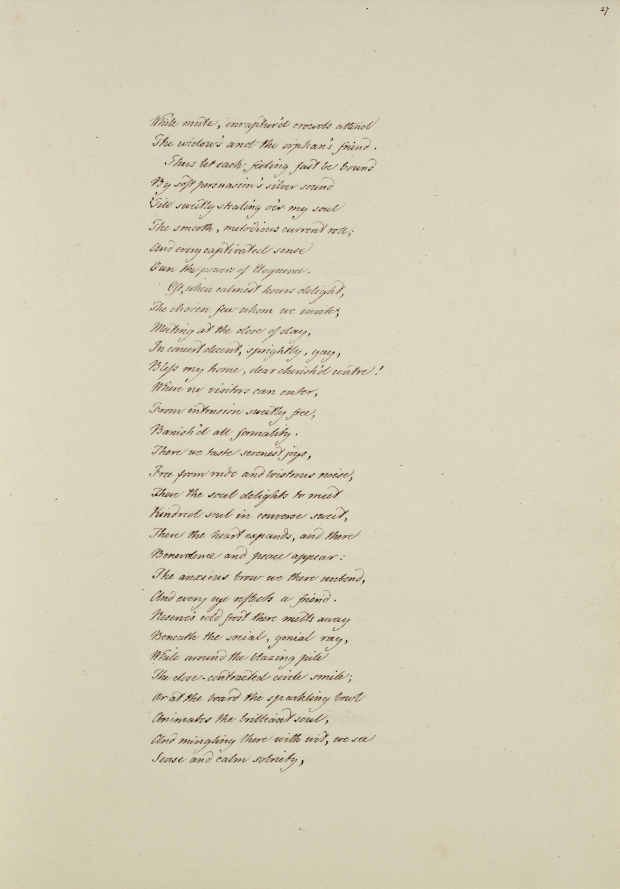 27
While mute, enraptur'd crowds attend
The widow's and the orphan's friend.
Thus let each feeling fast be bound
By soft persuasion's silver sound
'Till sweetly stealing o'er my soul
The smooth, melodious current roll;
And every captivated sense
Own the powers of Eloquence.
Oft, when calmest hours delight,
The chosen few whom we invite,
Meeting at the close of day,
In concert decent, sprightly, gay,
Bless my home, dear cherish'd centre!
Where no visitors can enter,
From intrusion sweetly free,
Banish'd all formality.
There we taste serenest joys,
Free from rude and boistrous noise,
There the soul delights to meet
Kindred soul in converse sweet,
There the heart expands, and there
Benevolence and peace appear:
The anxious brow we there unbend,
And every eye reflects a friend.
Reserve's cold frost there melts away
Beneath the social, genial ray,
While around the blazing pile
The close-contracted circle smile;
Or at the board the sparkling bowl
Animates the brilliant soul,
And mingling there with wit, we see
Sense and calm sobriety,